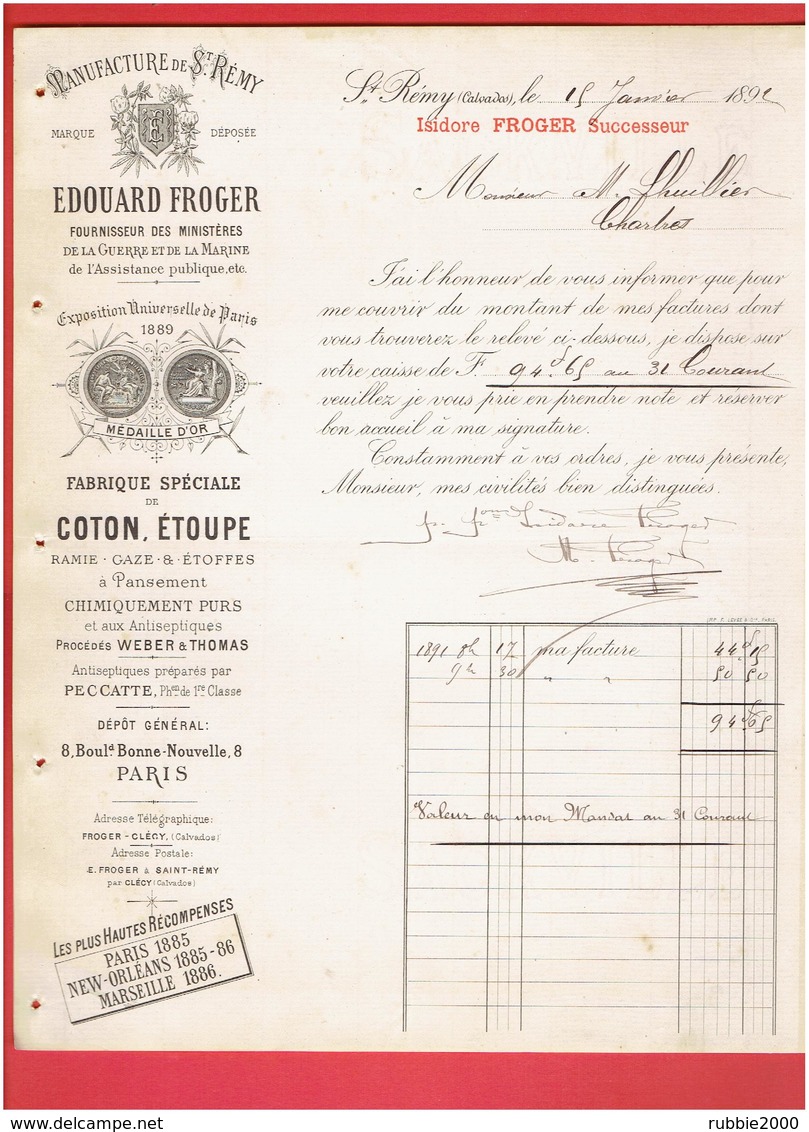 MANUFACTURE DE ST. RÉMY
MARQUE DÉPOSÉE
EDOUARD FROGER
FOURNISSEUR DES MINISTÈRES
DE LA GUERRE ET DE LA MARINE
de l'Assistance publique, etc.
Exposition Universelle de Paris
1889
MÉDAILLE D'OR
FABRIQUE SPÉCIALE
DE
COTON, ÉTOUPE
RAMIE - GAZE & ÉTOFFES
à Pansement
CHIMIQUEMENT PURS
et aux Antiseptiques
PROCÉDÉS WEBER & THOMAS
Antiseptiques préparés par
PECCATTE, Phcen de 1re Classe
DÉPÔT GÉNÉRAL:
8, Bould Bonne-Nouvelle, 8
PARIS
Adresse Télégraphique:
FROGER - CLÉCY. (Calvados)
Adresse Postale:
E. FROGER à SAINT-RÉMY
par CLÉCY (Calvados)
LES PLUS HAUTES RÉCOMPENSES
PARIS 1885
NEW-ORLÉANS 1885-86
MARSEILLE 1886.
St. Rémy (Calvados), le 15 Janvier 1892
Isidore FROGER Successeur
Monsieur M. Lhuillier
Chartres
J'ai l'honneur de vous informer que pour
me couvrir du montant de mes factures dont
vous trouverez le relevé ci-dessous, je dispose sur
votre caisse de F. 94f.65 au 31 Courant
veuillez je vous prie en prendre note et réserver
bon accueil à ma signature.
Constamment à vos ordres, je vous présente,
Monsieur, mes civilités bien distinguées.
Isidore Froger
M. Froger
IMP. F. LEVÉE & Cie, PARIS
1891 8bre 17 ma facture 44f 15
9bre 30 " " 50 50
94f 65
Valeur en mon Mandat au 31 Courant
rubbie2000